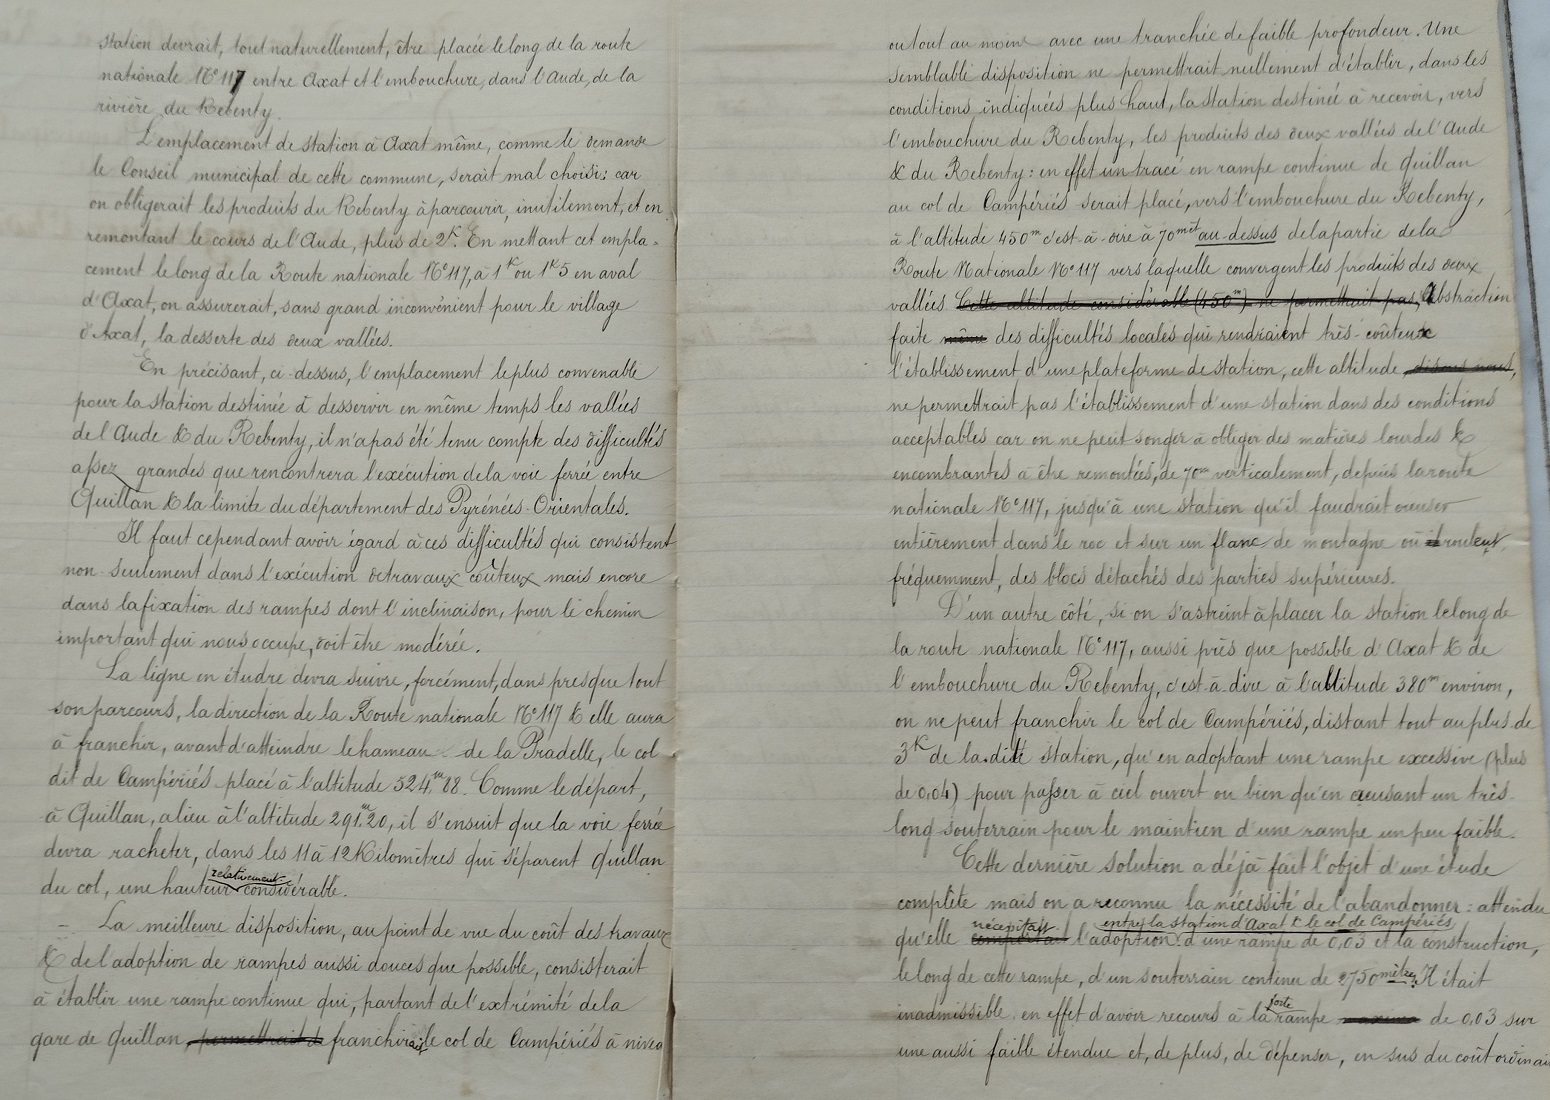 station devrait, tout naturellement, être placée le long de la route
nationale N° 117 entre Axat et l'embouchure, dans l'Aude, de la
rivière du Rebenty.
L'emplacement de station à Axat même, comme le demande
le Conseil municipal de cette commune, serait mal choisi: car
on obligerait les produits du Rebenty à parcourir, inutilement, et en
remontant le cours de l'Aude, plus de 2K. En mettant cet empla-
cement le long de la Route nationale N° 117, à 1K ou 1K5 en aval
d'Axat, on assurerait, sans grand inconvénient pour le village
d'Axat, la desserte des deux vallées.
En précisant, ci-dessus, l'emplacement le plus convenable
pour la station destinée à desservir en même temps les vallées
de l'Aude & du Rebenty, il n'a pas été tenu compte des difficultés
assez grandes que rencontrera l'exécution de la voie ferrée entre
Quillan & la limite du département des Pyrénées-Orientales.
Il faut cependant avoir égard à ces difficultés qui consistent
non seulement dans l'exécution de travaux coûteux mais encore
dans la fixation des rampes dont l'inclinaison, pour le chemin
important qui nous occupe, doit être modérée.
La ligne en étudre devra suivre, forcément, dans presque tout
son parcours, la direction de la Route nationale N° 117 & elle aura
à franchir, avant d'atteindre le hameau de la Pradelle, le col
dit de Campériés placé à l'altitude 524m.88. Comme le départ,
à Quillan, a lieu à l'altitude 291m.20, il s'ensuit que la voie ferrée
devra racheter, dans les 11 à 12 Kilomètres qui séparent Quillan
du col, une hauteur relativement considérable.
– La meilleure disposition, au point de vue du coût des travaux
& de l'adoption de rampes aussi douces que possible, consisterait
à établir une rampe continue qui, partant de l'extrémité de la
gare de Quillan, permettrait de franchirait le col de Campériés à nivea
ou tout au moins avec une tranchée de faible profondeur. Une
semblable disposition ne permettrait nullement d'établir, dans les
conditions indiquées plus haut, la station destinée à recevoir, vers
l'embouchure du Rebenty, les produits des deux vallées de l'Aude
& du Rebenty: en effet un tracé en rampe continue de Quillan
au col de Campériés serait placé, vers l'embouchure du Rebenty,
à l'altitude 450m c'est-à-dire à 70met au-dessus de la partie de la
Route Nationale N° 117 vers laquelle convergent les produits des deux
vallées Cette altitude considérable (450m) ne permettrait pas, Abstraction
faite même des difficultés locales qui rendraient très-coûteux
l'établissement d'une plateforme de station, cette altitude, disons nous,
ne permettrait pas l'établissement d'une station dans des conditions
acceptables car on ne peut songer à obliger des matières lourdes &
encombrantes à être remontées, de 70m verticalement, depuis la route
nationale N° 117, jusqu'à une station qu'il faudrait creuser
entièrement dans le roc et sur un flanc de montagne où il roulent,
fréquemment, des blocs détachés des parties supérieures.
D'un autre côté, si on s'astreint à placer la station le long de
la route nationale N° 117, aussi près que possible d'Axat & de
l'embouchure du Rebenty, c'est-à-dire à l'altitude 380m environ,
on ne peut franchir le col de Campériés, distant tout au plus de
3K de la dite station, qu'en adoptant une rampe excessive (plus
de 0,04) pour passer à ciel ouvert ou bien qu'en creusant un très-
long souterrain pour le maintien d'une rampe un peu faible.
Cette dernière solution a déjà fait l'objet d'une étude
complète mais on a reconnu la nécessité de l'abandonner: attendu
nécessitait entre la station d'Axat & le col de Campériés
qu'elle comportait l'adoption d'une rampe de 0,03 et la construction,
le long de cette rampe, d'un souterrain continu de 2750 mètres. Il était
inadmissible en effet d'avoir recours à la forte rampe maxima de 0,03 sur
une aussi faible étendue et, de plus, de dépenser, en sus du coût ordinai